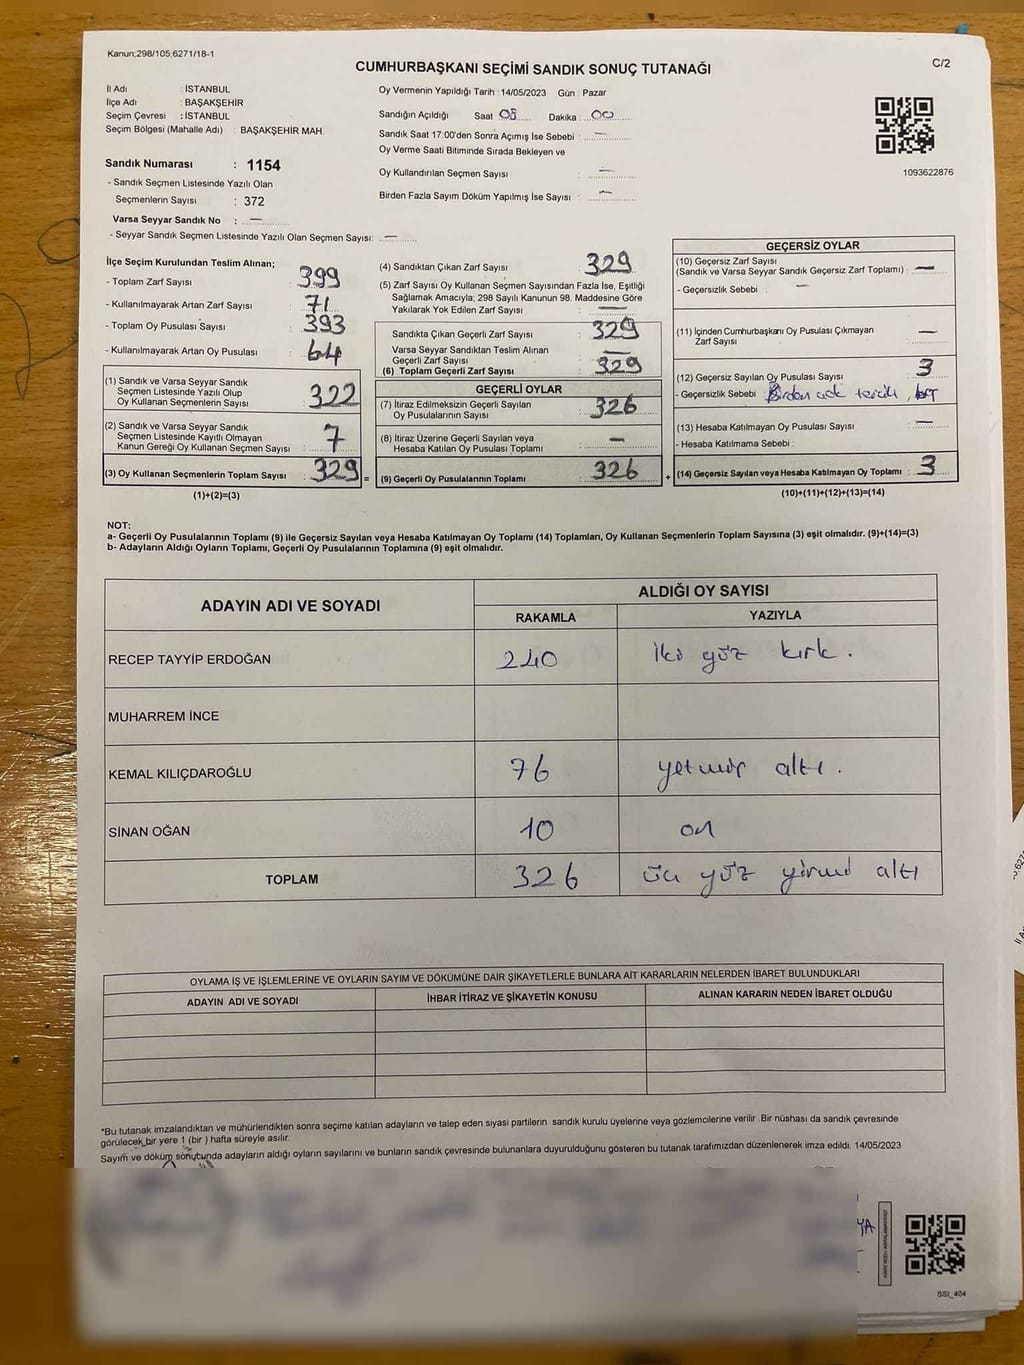 Kanun;298/105,6271/18-1
C/2
CUMHURBAŞKANI SEÇİMİ SANDIK SONUÇ TUTANAĞI
İl Adı : İSTANBUL
İlçe Adı : BAŞAKŞEHİR
Seçim Çevresi : İSTANBUL
Seçim Bölgesi (Mahalle Adı) : BAŞAKŞEHİR MAH.
Sandık Numarası : 1154
- Sandık Seçmen Listesinde Yazılı Olan
Seçmenlerin Sayısı : 372
Varsa Seyyar Sandık No : —
- Seyyar Sandık Seçmen Listesinde Yazılı Olan Seçmen Sayısı: —
Oy Vermenin Yapıldığı Tarih : 14/05/2023 Gün : Pazar
Sandığın Açıldığı Saat 08 Dakika : 00
Sandık Saat 17:00'den Sonra Açımış İse Sebebi : —
Oy Verme Saati Bitiminde Sırada Bekleyen ve
Oy Kullandırılan Seçmen Sayısı : —
Birden Fazla Sayım Döküm Yapılmış İse Sayısı : —
1093622876
İlçe Seçim Kurulundan Teslim Alınan;
- Toplam Zarf Sayısı : 399
- Kullanılmayarak Artan Zarf Sayısı : 71
- Toplam Oy Pusulası Sayısı : 393
- Kullanılmayarak Artan Oy Pusulası : 64
(1) Sandık ve Varsa Seyyar Sandık
Seçmen Listesinde Yazılı Olup
Oy Kullanan Seçmenlerin Sayısı : 322
(2) Sandık ve Varsa Seyyar Sandık
Seçmen Listesinde Kayıtlı Olmayan
Kanun Gereği Oy Kullanan Seçmen Sayısı : 7
(3) Oy Kullanan Seçmenlerin Toplam Sayısı : 329 =
(1)+(2)=(3)
(4) Sandıktan Çıkan Zarf Sayısı : 329
(5) Zarf Sayısı Oy Kullanan Seçmen Sayısından Fazla İse, Eşitliği
Sağlamak Amacıyla; 298 Sayılı Kanunun 98. Maddesine Göre
Yakılarak Yok Edilen Zarf Sayısı : —
Sandıkta Çıkan Geçerli Zarf Sayısı : 329
Varsa Seyyar Sandıktan Teslim Alınan
Geçerli Zarf Sayısı : —
(6) Toplam Geçerli Zarf Sayısı : 329
GEÇERLİ OYLAR
(7) İtiraz Edilmeksizin Geçerli Sayılan
Oy Pusulalarının Sayısı : 326
(8) İtiraz Üzerine Geçerli Sayılan veya
Hesaba Katılan Oy Pusulası Toplamı : —
(9) Geçerli Oy Pusulalarının Toplamı : 326 +
GEÇERSİZ OYLAR
(10) Geçersiz Zarf Sayısı
(Sandık ve Varsa Seyyar Sandık Geçersiz Zarf Toplamı) : —
- Geçersizlik Sebebi : —
(11) İçinden Cumhurbaşkanı Oy Pusulası Çıkmayan
Zarf Sayısı : —
(12) Geçersiz Sayılan Oy Pusulası Sayısı : 3
- Geçersizlik Sebebi : Birden çok tercih,
(13) Hesaba Katılmayan Oy Pusulası Sayısı : —
- Hesaba Katılmama Sebebi :
(14) Geçersiz Sayılan veya Hesaba Katılmayan Oy Toplamı : 3
(10)+(11)+(12)+(13)=(14)
NOT:
a- Geçerli Oy Pusulalarının Toplamı (9) ile Geçersiz Sayılan veya Hesaba Katılmayan Oy Toplamı (14) Toplamları, Oy Kullanan Seçmenlerin Toplam Sayısına (3) eşit olmalıdır. (9)+(14)=(3)
b- Adayların Aldığı Oyların Toplamı, Geçerli Oy Pusulalarının Toplamına (9) eşit olmalıdır.
ADAYIN ADI VE SOYADI ALDIĞI OY SAYISI
RAKAMLA YAZIYLA
RECEP TAYYİP ERDOĞAN 240 iki yüz kırk.
MUHARREM İNCE
KEMAL KILIÇDAROĞLU 76 yetmiş altı.
SİNAN OĞAN 10 on
TOPLAM 326 üç yüz yirmi altı
OYLAMA İŞ VE İŞLEMLERİNE VE OYLARIN SAYIM VE DÖKÜMÜNE DAİR ŞİKAYETLERLE BUNLARA AİT KARARLARIN NELERDEN İBARET BULUNDUKLARI
ADAYIN ADI VE SOYADI İHBAR İTİRAZ VE ŞİKAYETİN KONUSU ALINAN KARARIN NEDEN İBARET OLDUĞU
*Bu tutanak imzalandıktan ve mühürlendikten sonra seçime katılan adayların ve talep eden siyasi partilerin sandık kurulu üyelerine veya gözlemcilerine verilir .Bir nüshası da sandık çevresinde
görülecek bir yere 1 (bir ) hafta süreyle asılır.
Sayım ve döküm sonucunda adayların aldığı oyların sayılarını ve bunların sandık çevresinde bulunanlara duyurulduğunu gösteren bu tutanak tarafımızdan düzenlenerek imza edildi. 14/05/2023
YA
SSİ_404